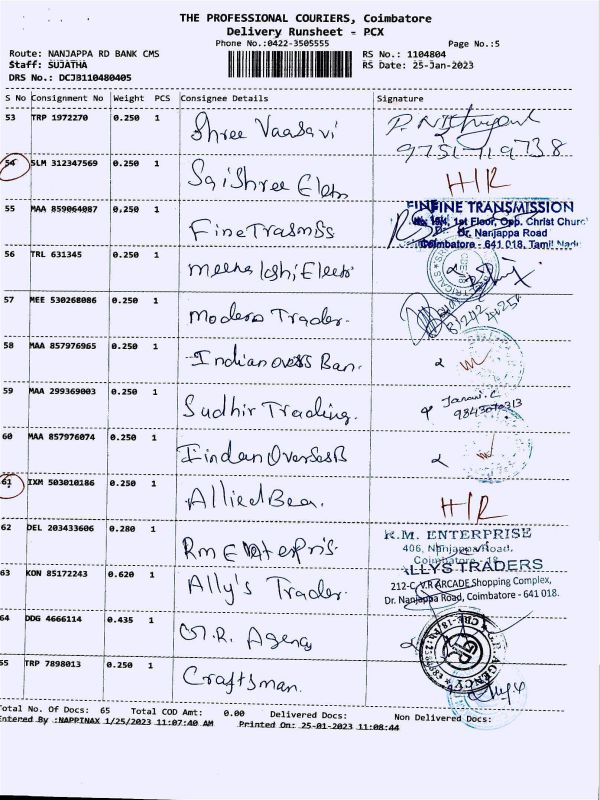 THE PROFESSIONAL COURIERS, Coimbatore
Delivery Runsheet - PCX
Phone No.:0422-3505555 Page No.:5
Route: NANJAPPA RD BANK CMS RS No.: 1104804
Staff: SUJATHA RS Date: 25-Jan-2023
DRS No.: DCJB110480405
S No Consignment No Weight PCS Consignee Details Signature
53 TRP 1972270 0.250 1 Shree Vaasavi
54 SLM 312347569 0.250 1 Sai Shree H/R
55 MAA 859064087 0.250 1 Fine
FINE TRANSMISSION
1st Floor, Opp. Christ Church
Dr. Nanjappa Road
Coimbatore - 641 018, Tamil Nadu
56 TRL 631345 0.250 1
57 MEE 530268086 0.250 1 Modern Trader.
58 MAA 857976965 0.250 1 Indian Ban.
59 MAA 299369003 0.250 1 Sudhir Trading.
60 MAA 857976074 0.250 1
61 IXM 503010186 0.250 1 Allied Bea. H/R
62 DEL 203433606 0.280 1 Rm
K.M. ENTERPRISE
406, Nanjappa Road,
Coimbatore - 18
63 KON 85172243 0.620 1 Ally's Trader.
ALLYS TRADERS
212-C, V.R ARCADE Shopping Complex,
Dr. Nanjappa Road, Coimbatore - 641 018.
64 DDG 4666114 0.435 1 G.R. Agency
65 TRP 7898013 0.250 1 Craftsman.
Total No. Of Docs: 65 Total COD Amt: 0.00 Delivered Docs: Non Delivered Docs:
Entered By :NAPPINAX 1/25/2023 11:07:40 AM Printed On: 25-01-2023 11:08:44